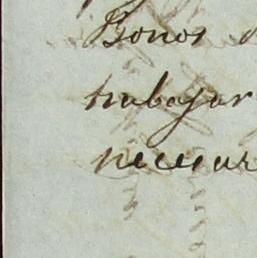 Bonos
trabajar
necesar